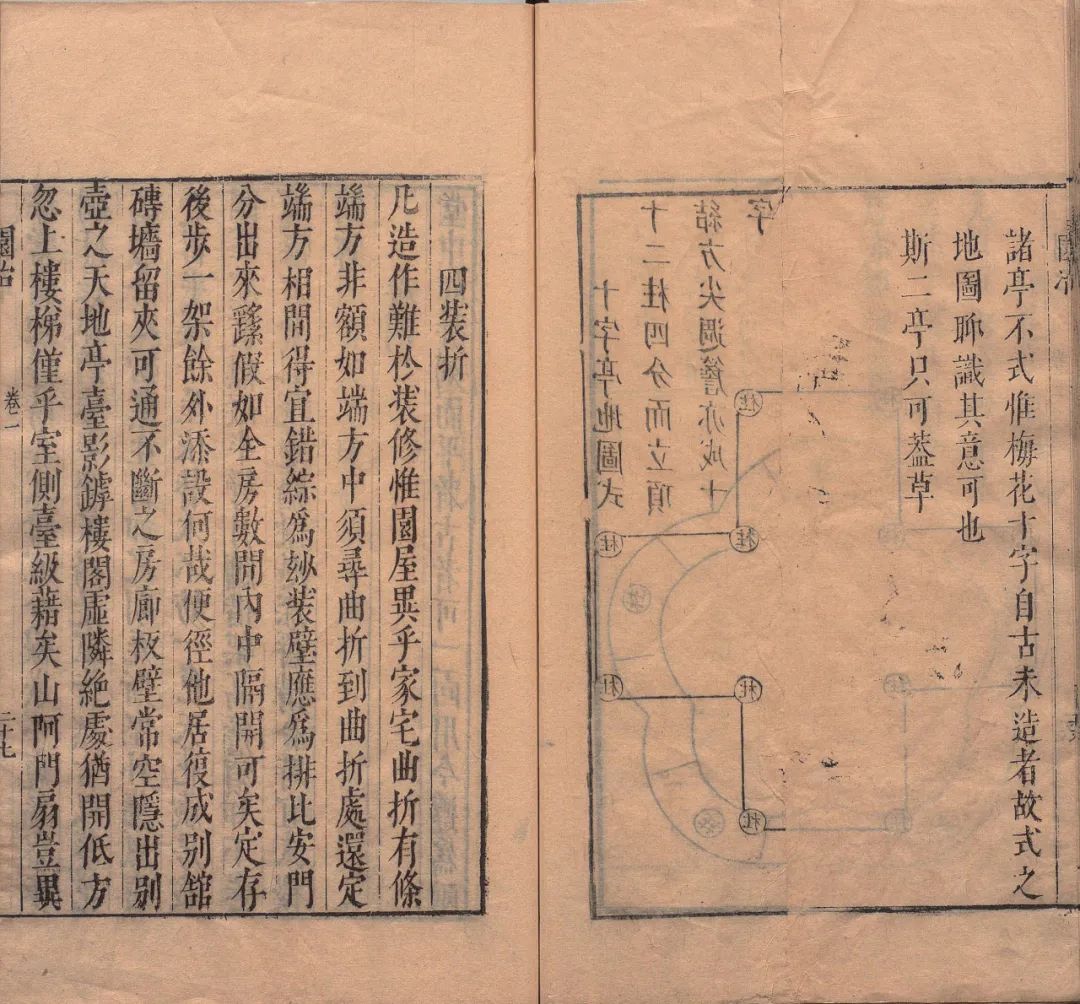 園冶
諸亭不式惟梅花十字自古未造者故式之
地圖聊識其意可也
斯二亭只可蓋草
十字亭地圖式
十二柱四分而立頂
結方尖週簷亦成十
字
柱
柱
柱
柱
柱
柱
四裝折
凡造作難扵裝修惟園屋異乎家宅曲折有條
端方非額如端方中須尋曲折到曲折處還定
端方相間得宜錯綜爲玅裝壁應爲排比安門
分出來繇假如全房數間內中隔開可矣定存
後步一架餘外添設何哉便徑他居復成別舘
磚墻留夾可通不斷之房廊板壁常空隱出別
壺之天地亭臺影罅樓閣虛隣絶處猶開低方
忽上樓梯僅乎室側臺級藉矣山阿門扇豈異
園冶
卷一
二十七